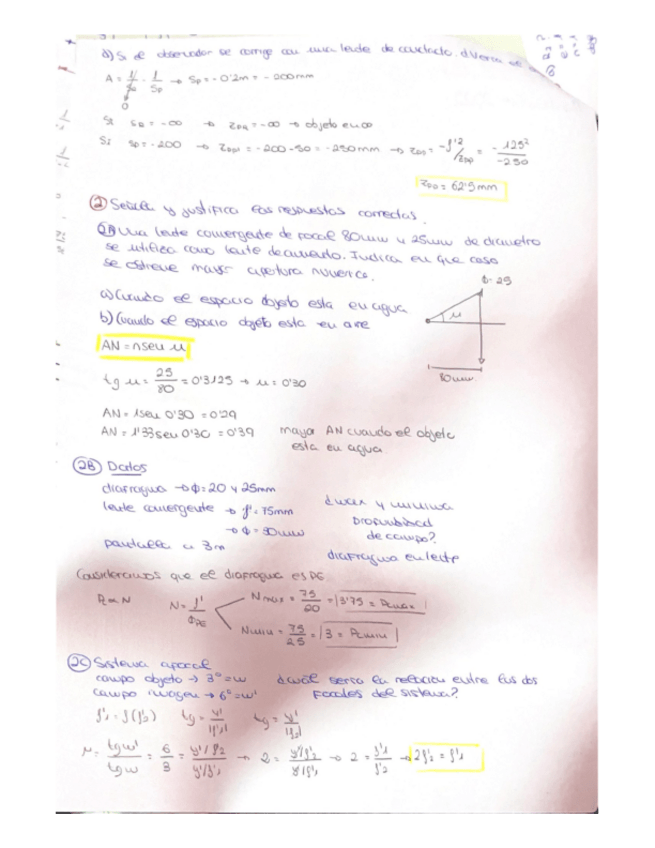 d) Si el observador se corrige con una lente de contacto.
A = 1/ · 1/Sp → Sp = -0'2m = -200mm
Si SR = -∞ → = -∞ → objeto en ∞
Si Sp = -200 → = -200-50 = -250mm → = -f'²/ = -125²/-250
= 62'5mm
2 Señala y justifica las respuestas correctas.
2A Una lente convergente de focal 80mm y 25mm de diametro
se utiliza como lente de aumento. Indica en que caso
se obtiene mayor apertura numerica.
ϕ=25
a) Cuando el espacio objeto esta en agua
b) Cuando el espacio objeto esta en aire
u
AN = nsen u
80mm
tg u = 25/80 = 0'3125 → u = 0'30
AN = 1sen 0'30 = 0'29
AN = 1'33sen 0'30 = 0'39 mayor AN cuando el objeto
esta en agua
2B Datos
diafragma → ϕ = 20 y 25mm
lente convergente → f' = 75mm
→ ϕ = 90mm
pantalla a 3m
¿max y minima
profundidad
de campo?
diafragma en lente
Consideramos que el diafragma es PE
N = f'/ϕPE
Nmax = 75/20 = 3'75 = Pcmax
Nmin = 75/25 = 3 = Pcmin
2C Sistema afocal
campo objeto → 3° = w ¿cuál seria la relacion entre las dos
campo imagen → 6° = w' focales del sistema?
f'1 = f(f'2) tg = y'/|f'1| tg = y'/|f2|
= tgw'/tgw = 6/3 = y'/f2 / y'/f'1 → 2 = y'/f'2 / y'/f'1 → 2 = f'1/f'2 → 2f'2 = f'1